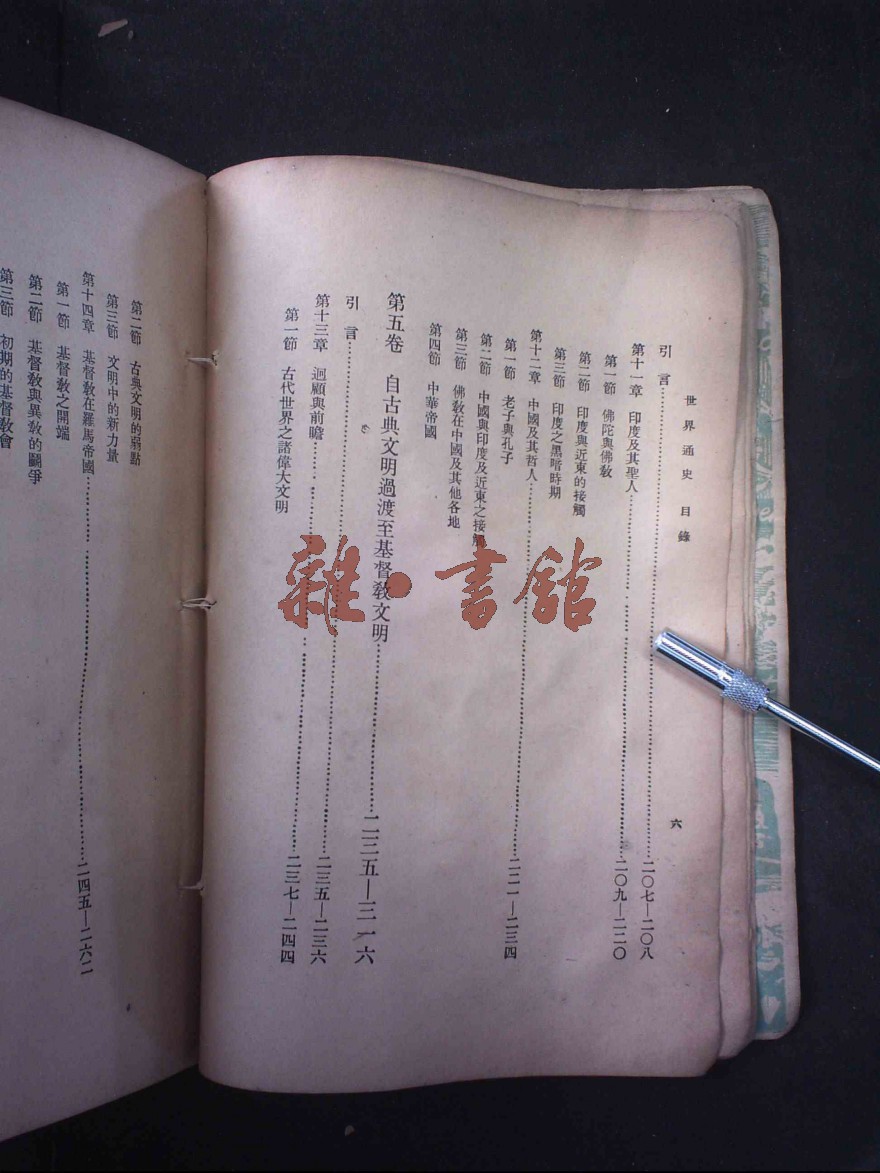 世界通史 目錄 六
引言……二〇七—二〇八
第十一章 印度及其聖人……二〇九—二二〇
第一節 佛陀與佛教
第二節 印度與近東的接觸
第三節 印度之黑暗時期
第十二章 中國及其哲人……二二一—二三四
第一節 老子與孔子
第二節 中國與印度及近東之接觸
第三節 佛教在中國及其他各地
第四節 中華帝國
第五卷 自古典文明過渡至基督教文明……二三五—三一六
引言……二三五—二三六
第十三章 迴顧與前瞻……二三七—二四四
第一節 古代世界之諸偉大文明
第二節 古典文明的弱點
第三節 文明中的新力量
第十四章 基督教在羅馬帝國……二四五—二六二
第一節 基督教之開端
第二節 基督教與異教的鬭爭
第三節 初期的基督教會
雜·書館